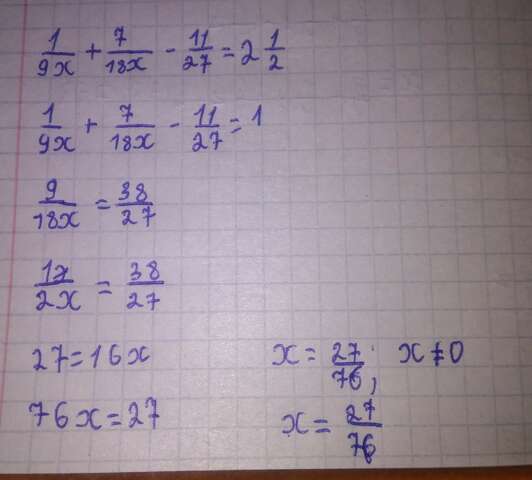 1/9x + 7/18x - 11/27 = 2 1/2
1/9x + 7/18x - 11/27 = 1
9/18x = 38/27
1x/2x = 38/27
27 = 16x
76x = 27
x = 27/76; x ≠ 0
x = 27/76